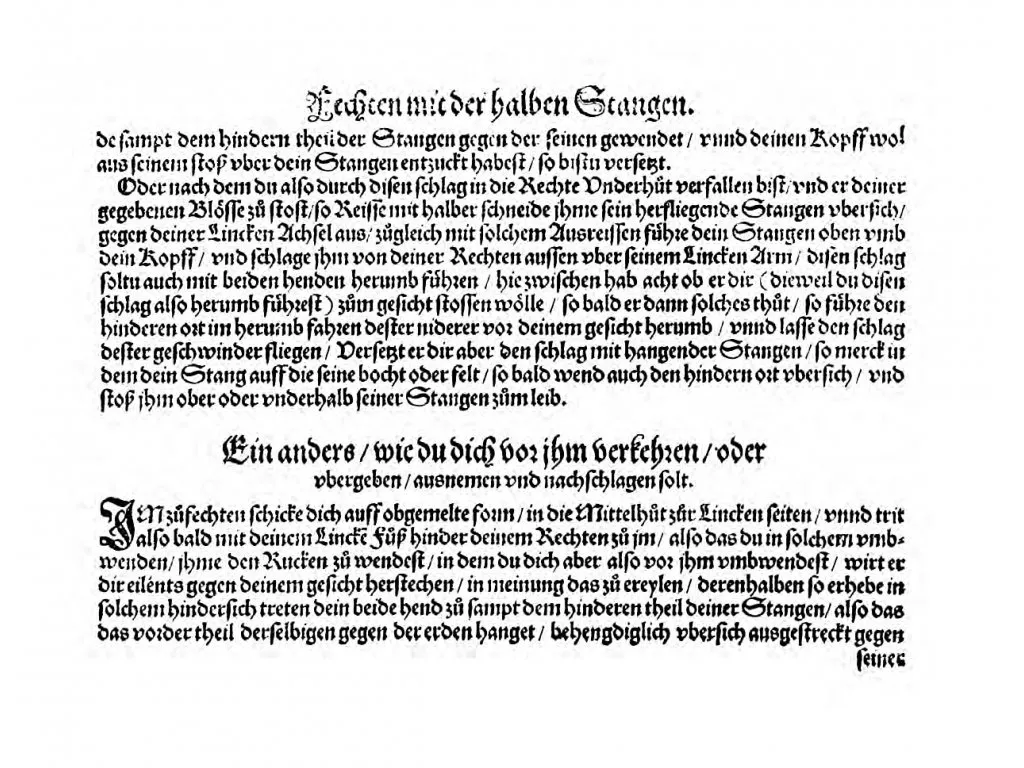 Fechten mit der halben Stangen.
de sampt dem hindern theil der Stangen gegen der seinen gewendet / vnnd deinen Kopff wol
aus seinem stoß vber dein Stangen entzuckt habest / so bistu versetzt.
Oder nach dem du also durch disen schlag in die Rechte Vnderhůt verfallen bist / vnd er deiner
gegebenen Blösse zů stost / so Reisse mit halber schneide jhme sein herfliegende Stangen vbersich /
gegen deiner Lincken Achsel aus / zůgleich mit solchem Ausreissen führe dein Stangen oben vmb
dein Kopff / vnd schlage jhm von deiner Rechten aussen vber seinem Lincken Arm / disen schlag
soltu auch mit beiden henden herumb führen / hie zwischen hab acht ob er dir ( dieweil du disen
schlag also herumb führest ) zům gesicht stossen wölle / so bald er dann solches thůt / so führe den
hinderen ort im herumb fahren dester niderer vor deinem gesicht herumb / vnnd lasse den schlag
dester geschwinder fliegen / Versetzt er dir aber den schlag mit hangender Stangen / so merck in
dem dein Stang auff die seine bocht oder felt / so bald wend auch den hindern ort vbersich / vnd
stoß jhm ober oder vnderhalb seiner Stangen zům leib.
Ein anders / wie du dich vor jhm verkehren / oder
vbergeben / ausnemen vnd nachschlagen solt.
IM zůfechten schicke dich auff obgemelte form / in die Mittelhůt zůr Lincken seiten / vnnd trit
also bald mit deinem Lincke͂ Fůß hinder deinem Rechten zů jm / also das du in solchem vmb⸗
wenden / jhme den Rucken zů wendest / in dem du dich aber also vor jhm vmbwendest / wirt er
dir eilents gegen deinem gesicht herstechen / in meinung das zů ereylen / derenhalben so erhebe in
solchem hindersich treten dein beide hend zů sampt dem hinderen theil deiner Stangen / also das
das vorder theil derselbigen gegen der erden hanget / behengdiglich vbersich ausgestreckt gegen
seiner